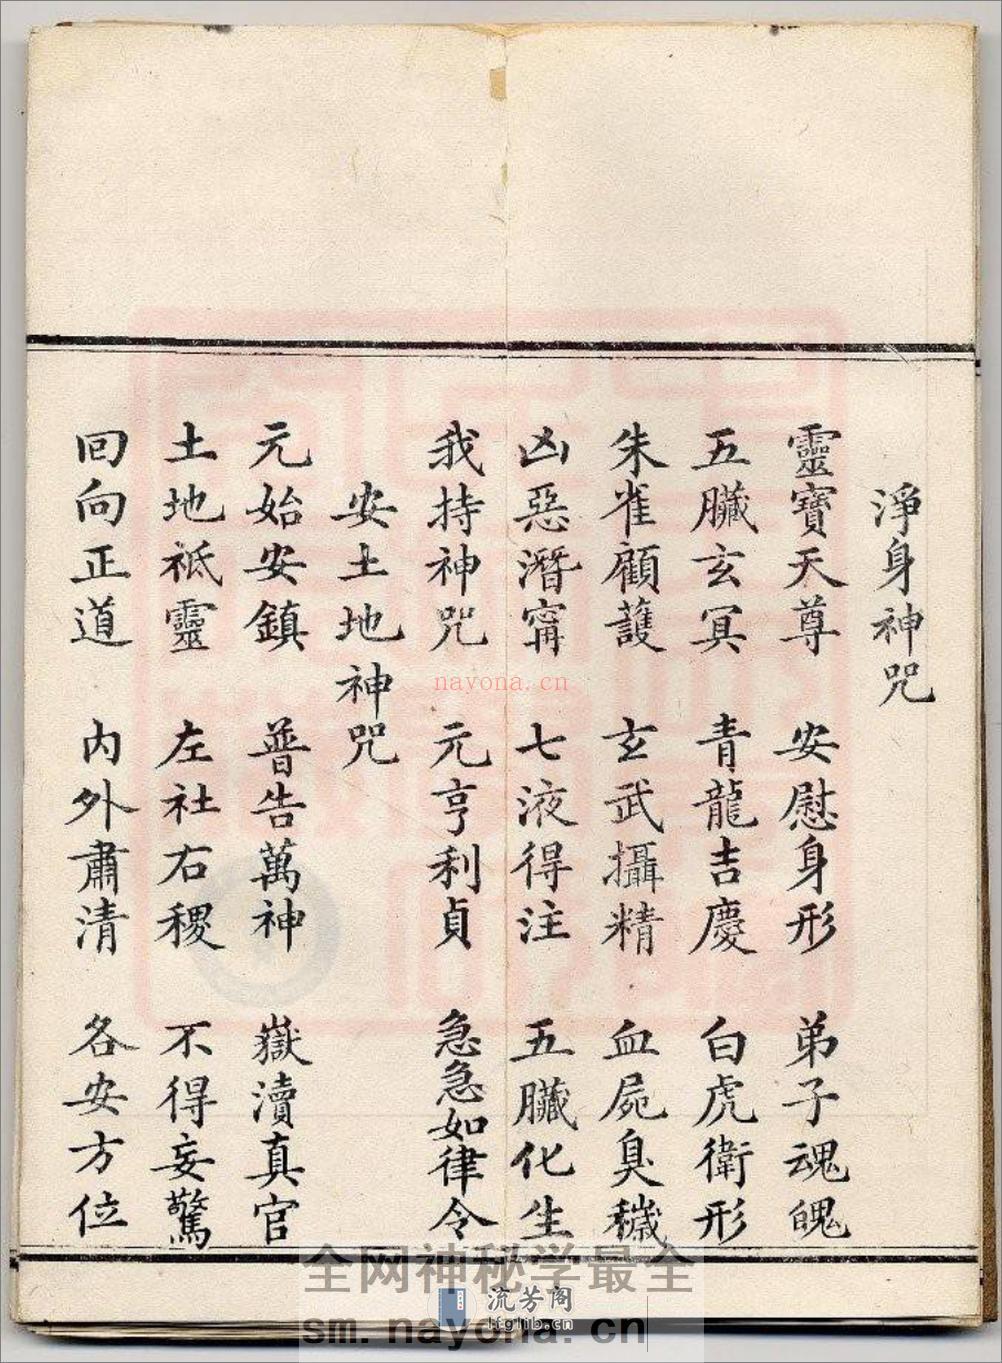 淨身神咒
靈寶天尊 安慰身形 弟子魂魄
五臟玄冥 青龍吉慶 白虎衛形
朱雀顧護 玄武攝精 血屍臭穢
凶惡潛寗 七液得注 五臟化生
我持神咒 元亨利貞 急急如律令
安土地神咒
元始安鎮 普告萬神 嶽瀆真官
土地祇靈 左社右稷 不得妄驚
回向正道 內外肅清 各安方位
nayona.cn
全网神秘学最全
流芳阁
lfglib.cn
sm.nayona.cn